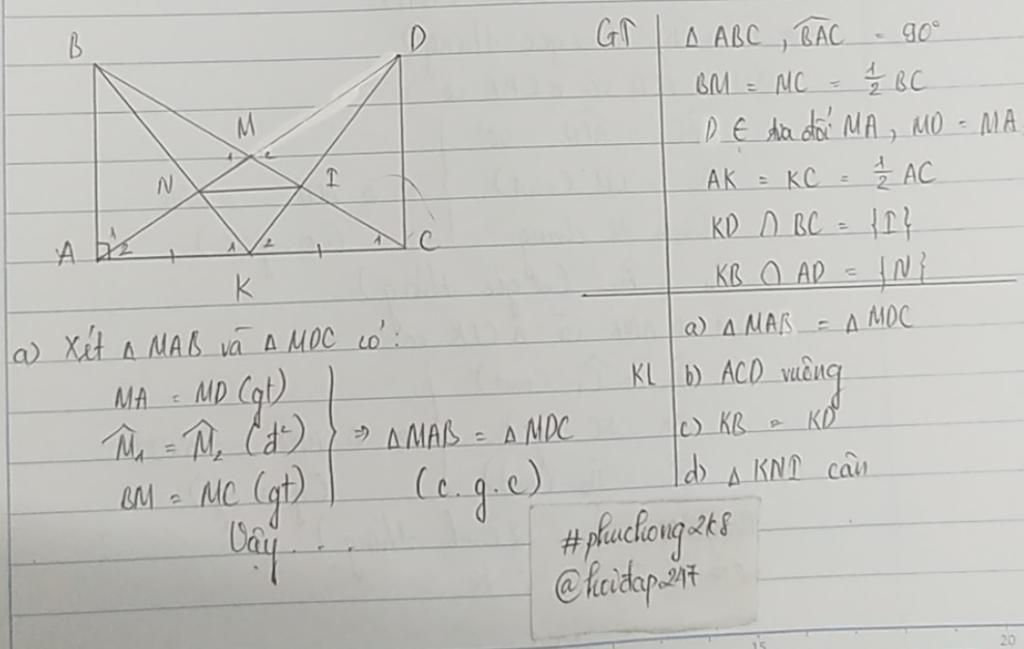 B
D
M
1 2
N
I
A
1
2
1 2
1
C
K
GT
Δ ABC, BAC = 90°
BM = MC = 1/2 BC
D ∈ tia đối MA, MD = MA
AK = KC = 1/2 AC
KD ∩ BC = {I}
KB ∩ AD = {N}
KL
a) Δ MAB = Δ MDC
b) ACD vuông
c) KB = KD
d) Δ KNI cân
a) Xét Δ MAB và Δ MDC có:
MA = MD (gt)
M̂₁ = M̂₂ (đ²)
BM = MC (gt)
⇒ ΔMAB = ΔMDC
(c.g.c)
Vậy ...
#phuchong2k8
@hoidap247
15
20